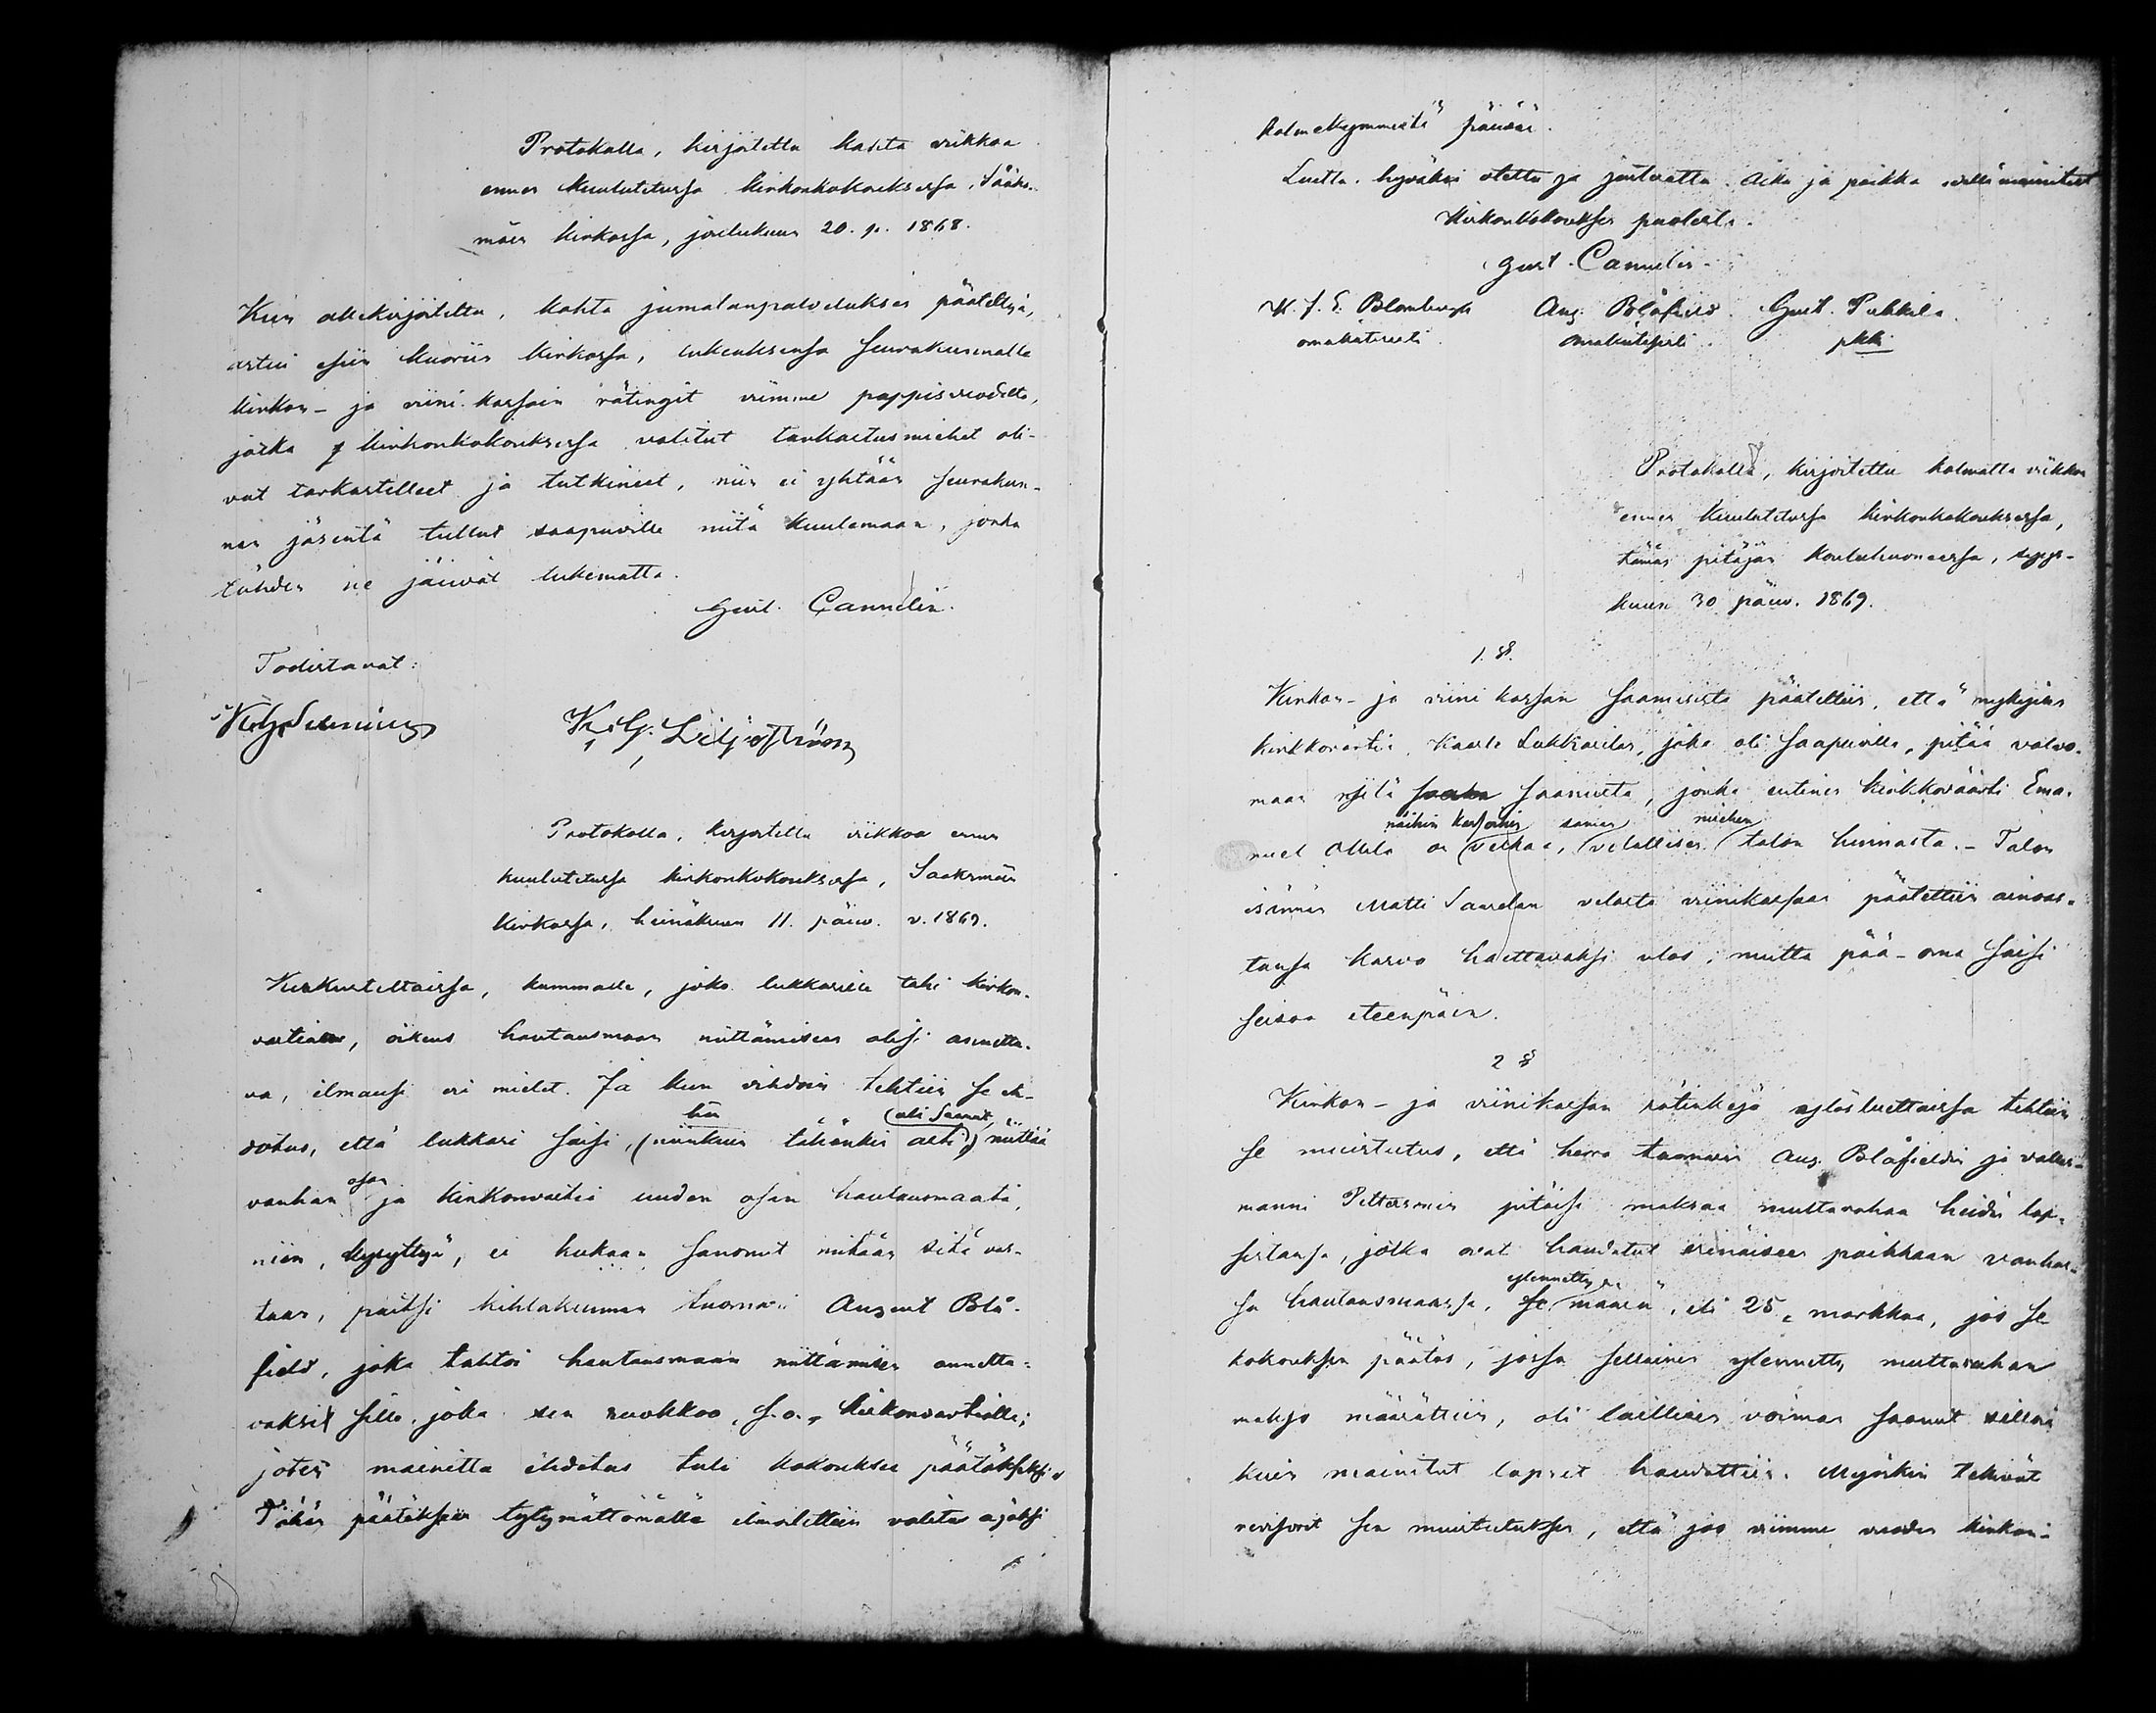 Protokolla, kirjoitettu kahta viikkoa
ennen kuulutetussa kirkonkokouksessa, Sääks-
mäen kirkossa, joulukuun 20. p. 1868.
Kuin allekirjoitettu, kahta jumalanpalveluksen päätettyä,
astui esiin kuoriin kirkossa, lukeaksensa seurakunnalle
kirkon- ja viini kassain rätingit viimme pappisvuodelta,
jotka kirkonkokouksessa valitut tarkastusmiehet oli-
vat tarkastelleet ja tutkineet, niin ei yhtään seurakun-
nan jäsentä tullut saapuville niitä kuulemaan, jonka
tähden ne jäivät lukematta.
Gust. Cannelin.
Todistavat:
K. G. Liljeström
Protokolla, kirjoitettu viikkoa ennen
kuulutetussa kirkonkokouksessa, Sääksmäen
kirkossa, heinäkuun 11. päiw. v. 1869.
Keskusteltaissa, kummalle, joko lukkarille tahi kirkon-
vartialle, oikeus hautausmaan niittämiseen olisi annetta-
va, ilmausi eri mielet. Ja kun vihdoin tehtiin se eh-
hän (oli saanut,
dotus, että lukkari saisi, (niinkuin tähänkin asti,) niittää
osan
vanhan ja kirkonvartia uuden osan hautausmaata,
niin, kysyttyä, ei kukaan sanonut mitään sitä vas-
taan, paitsi kihlakunnan tuomari August Blå-
field, joka tahtoi hautausmaan niittämisen annetta-
vaksi sille, joka sen ruokkoo, s.o., kirkonvartialle;
joten mainittu ehdotus tuli kokouksen päätökseksi.
Tähän päätökseen tytymättömälle ilmoitettiin valitus ajaksi
kolmekymmentä päivää.
Luettu, hyväksi otettu ja Aika ja paikka mainitut
Kirkonkokouksen puolesta.
Gust. Cannelin.
K. J. E. Blomberg Aug. Blåfield. Gust. Pukkila.
omakätisesti. omakätisesti. pkk.
Protokolla, kirjoitettu kolmatta viikkoa
ennen kuulutetussa kirkonkokouksessa,
tämän pitäjän kouluhuoneessa, syys-
kuun 30 päiw. 1869.
1. §.
Kirkon- ja viini kassan saamisista päätettiin, että nykyisen
kirkkovärtin, Kaarle Lukkarilan, joka oli saapuvilla, pitää valvo-
maan sitä saamista, jonka entinen kirkkoväärti Ema-
näihin kassoihin saman miehen
nuel Ollila on velkaa, velallisen talon hinnasta. - Talon
isännän Matti Saarelan velasta viinikassaan päätettiin ainoas-
tansa karvo haettavaksi ulos; mutta pää-oma saisi
seisoa eteenpäin.
2 §
Kirkon- ja viinikassan rätinkejä ylösluettaissa tehtiin
se muistutus, että herra tuomari Aug. Blåfieldin ja valles-
manni Pettersonin pitäisi maksaa multarahaa heidän lap-
sistansa, jotka ovat haudatut erinäiseen paikkaan vanhas-
ylennetty
sa hautausmaassa, se määrä, eli 25, markkaa, jos se
kokouksen päätös, jossa sellainen ylennetty multarahan
maksu määrättiin, oli laillisen voiman saanut silloin
kuin mainitut lapset haudattiin. Myöskin tekivät
revisorit sen muistutuksen, että jos viimme vuoden kirkon-